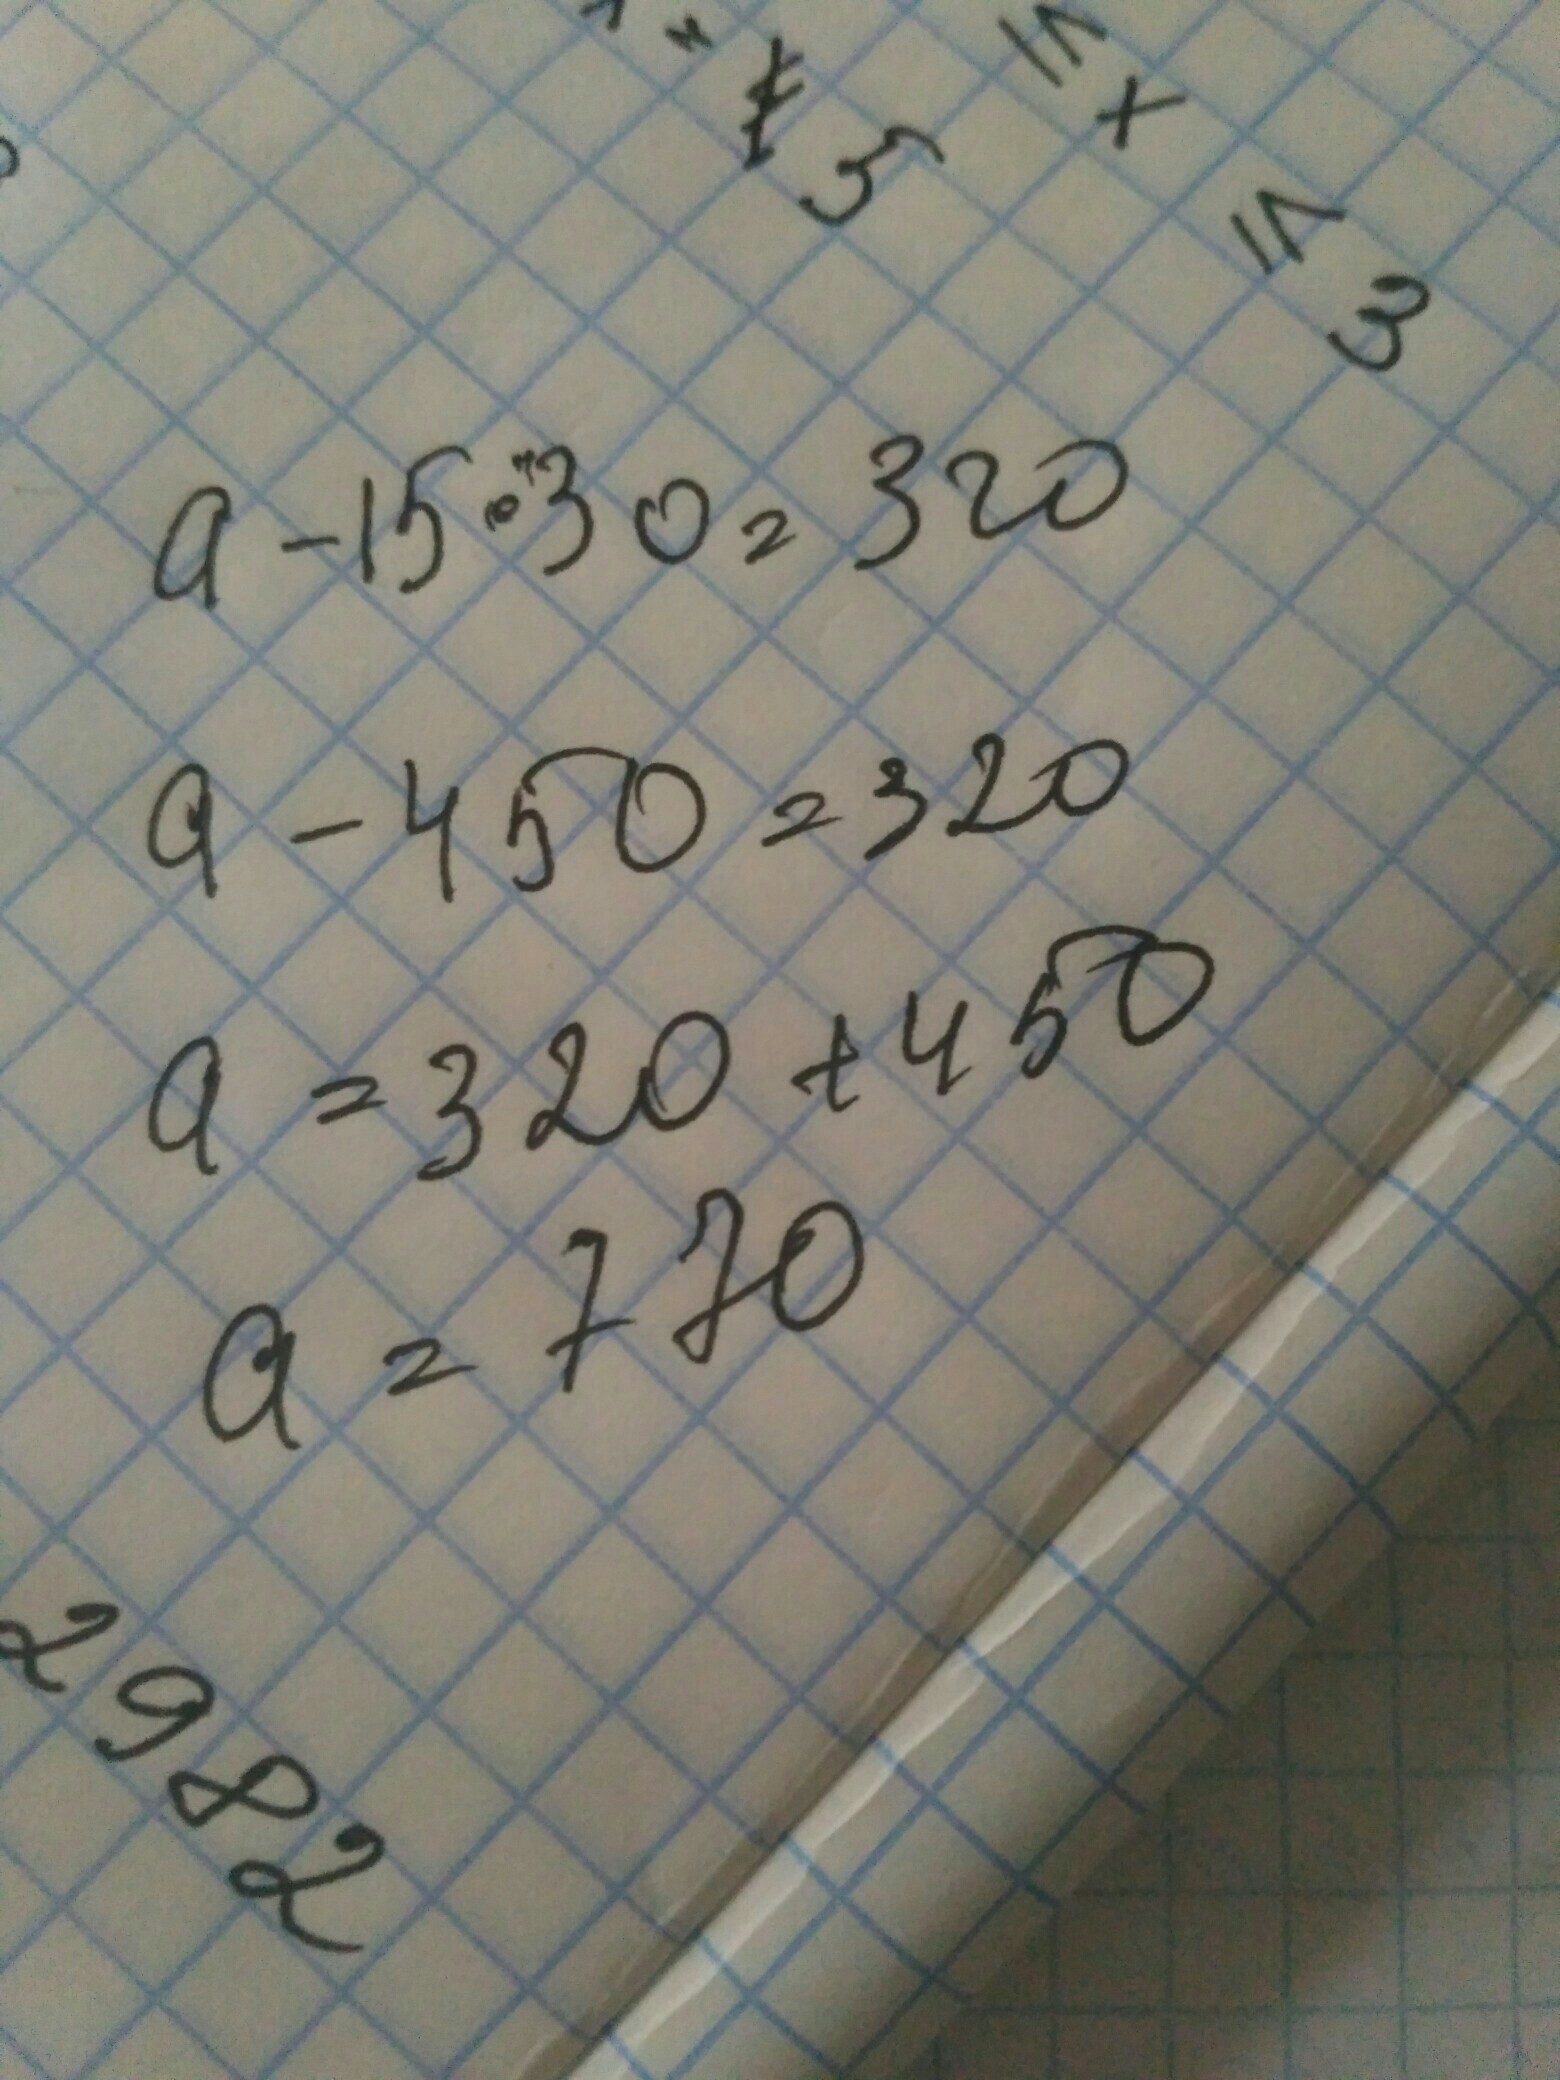 5 ≤ x ≤ 3
a - 15 · 30 = 320
a - 450 = 320
a = 320 + 450
a = 770
2982